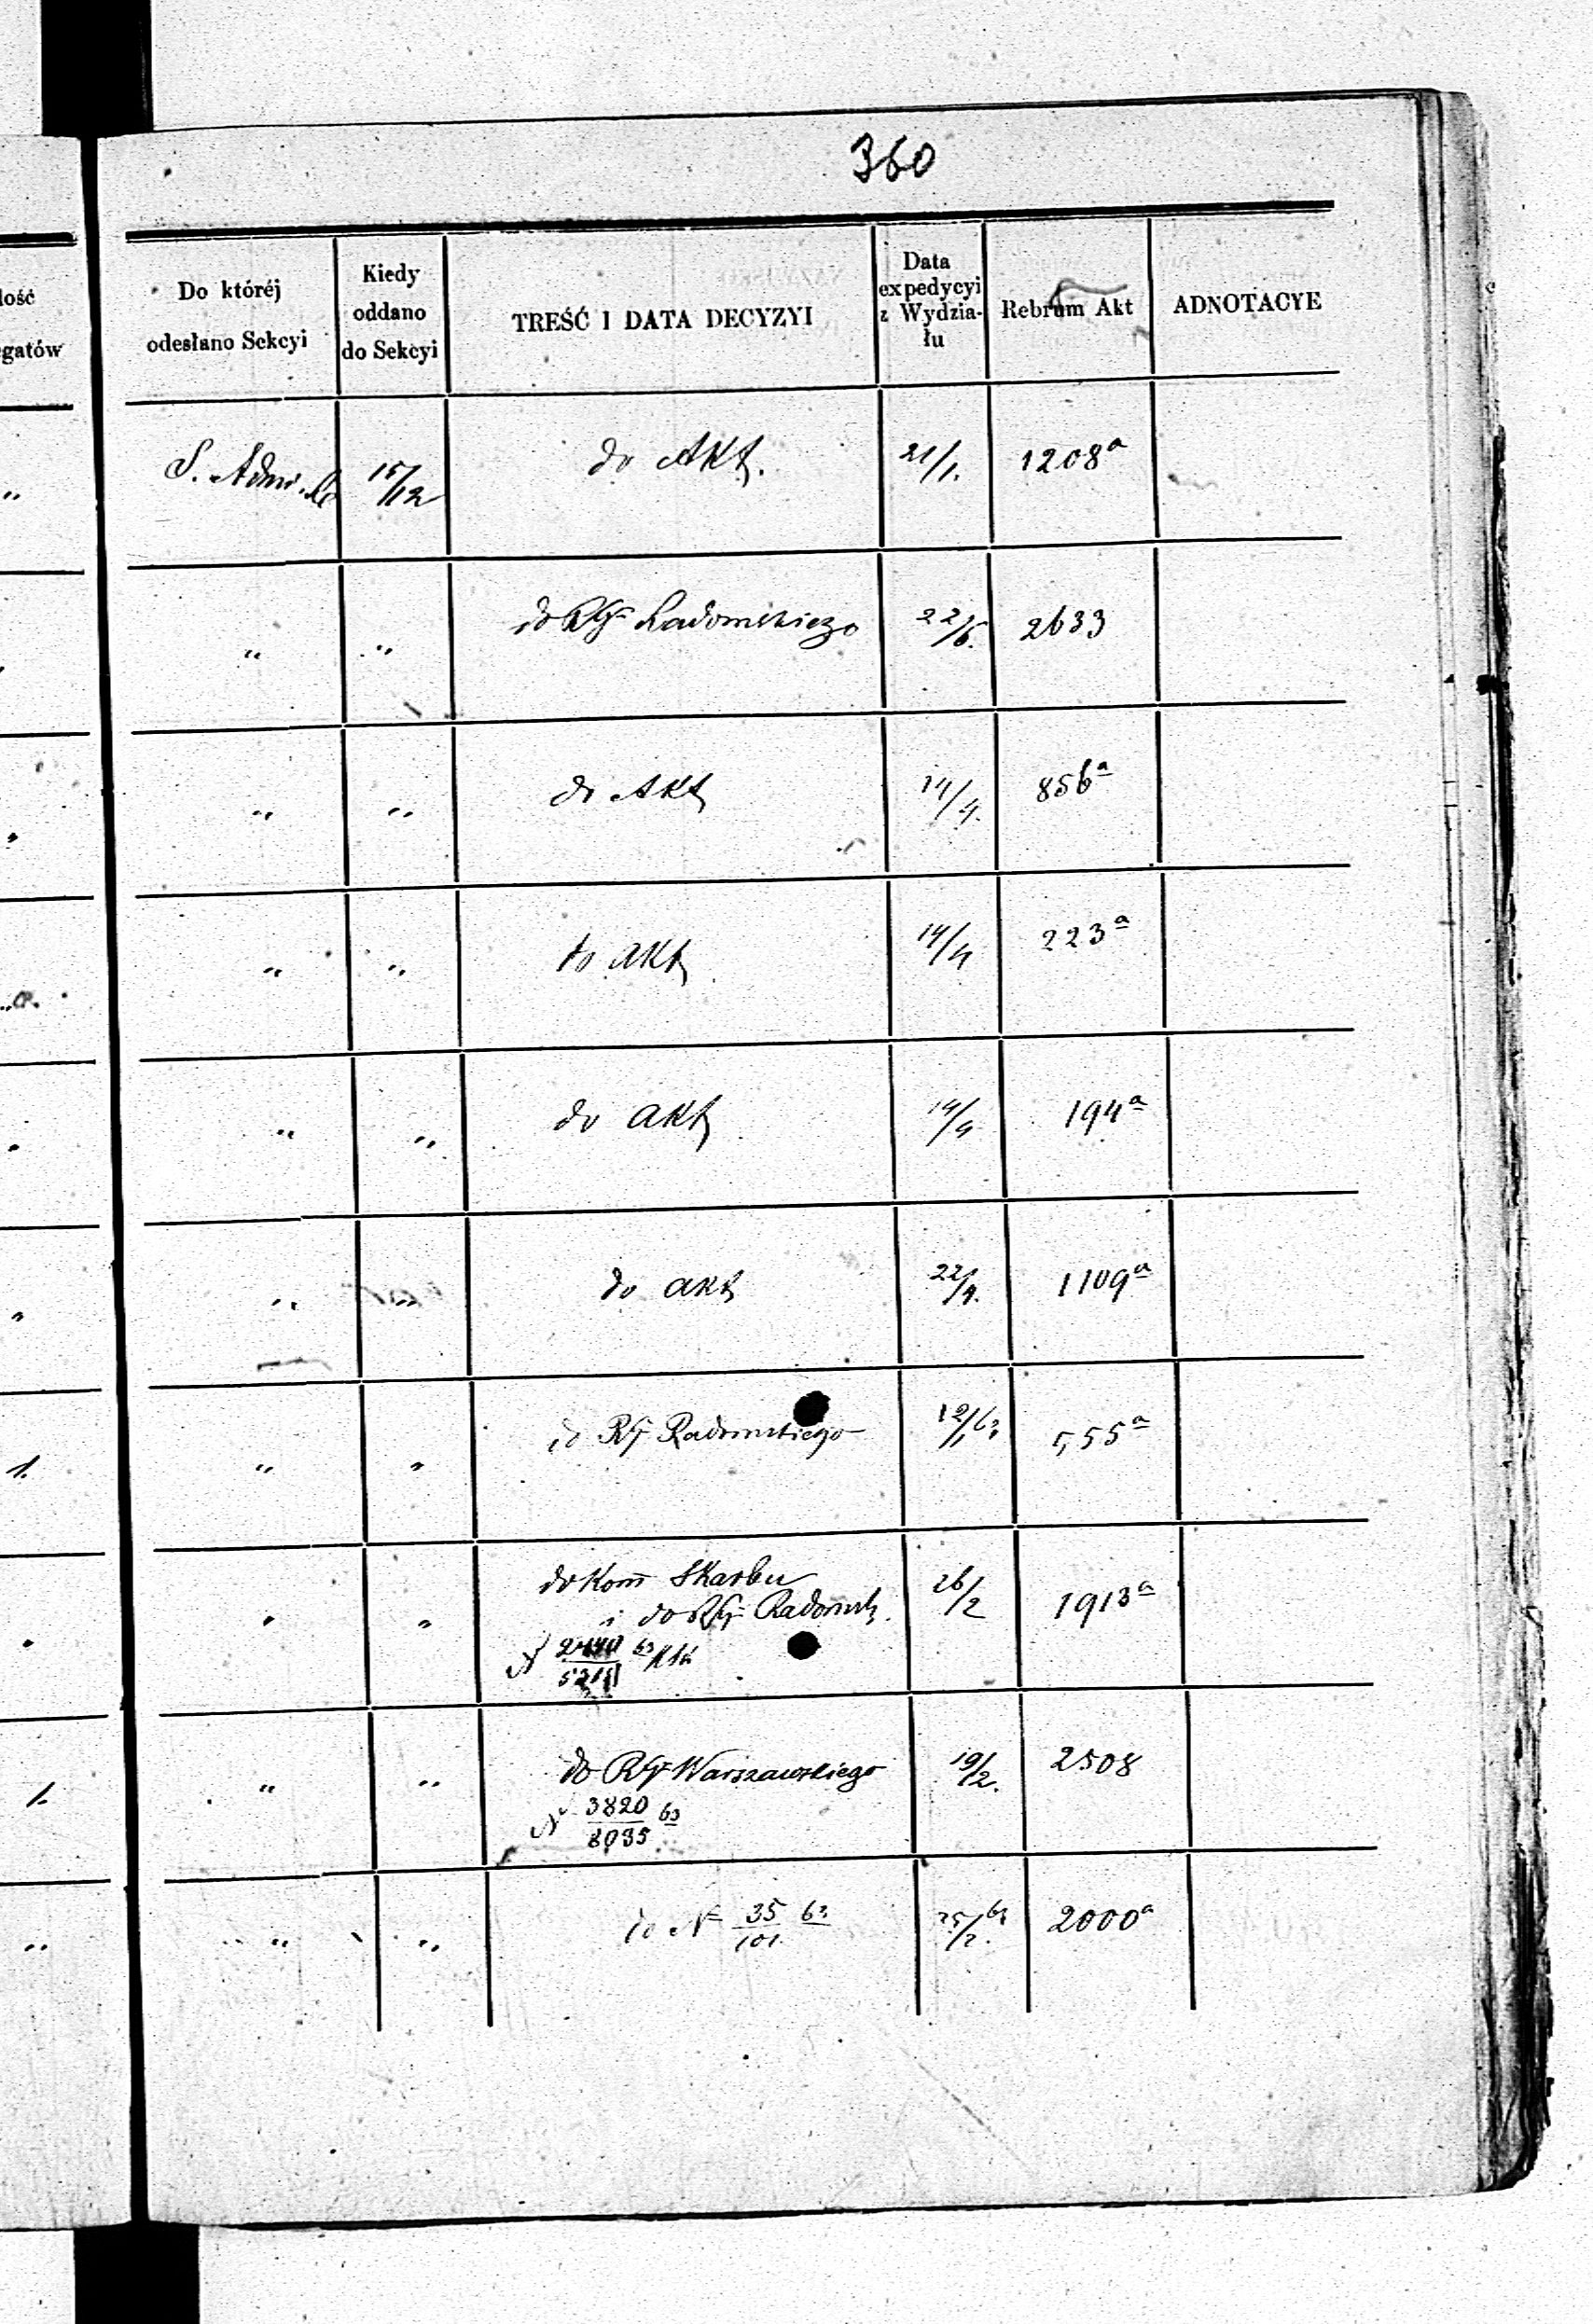 360
lość
egatów
Do któréj
odesłano Sekcyi
Kiedy
oddano
do Sekcyi
TREŚĆ I DATA DECYZYI
Data
expedycyi
z Wydzia-
łu
Rebrum Akt
ADNOTACYE
S. Adm. 15/12 do Akt. 21/1. 1208a
" " do RG Radomskiego 22/5. 2633
" " do Akt 14/4. 856a
" " do Akt 14/4 223a
" " do akt 14/4 194a
" " do akt 22/4. 1109a
1. " " do RG Radomskiego 12/1 63 555a
" " do Kom Skarbu 26/2 1913a
i do RG Radomsk.
N 63
1. " " do RG Warszawskiego 19/2. 2508
N 3820/8035 63
" " " do N 35/101 63 25/2. 63 2000a